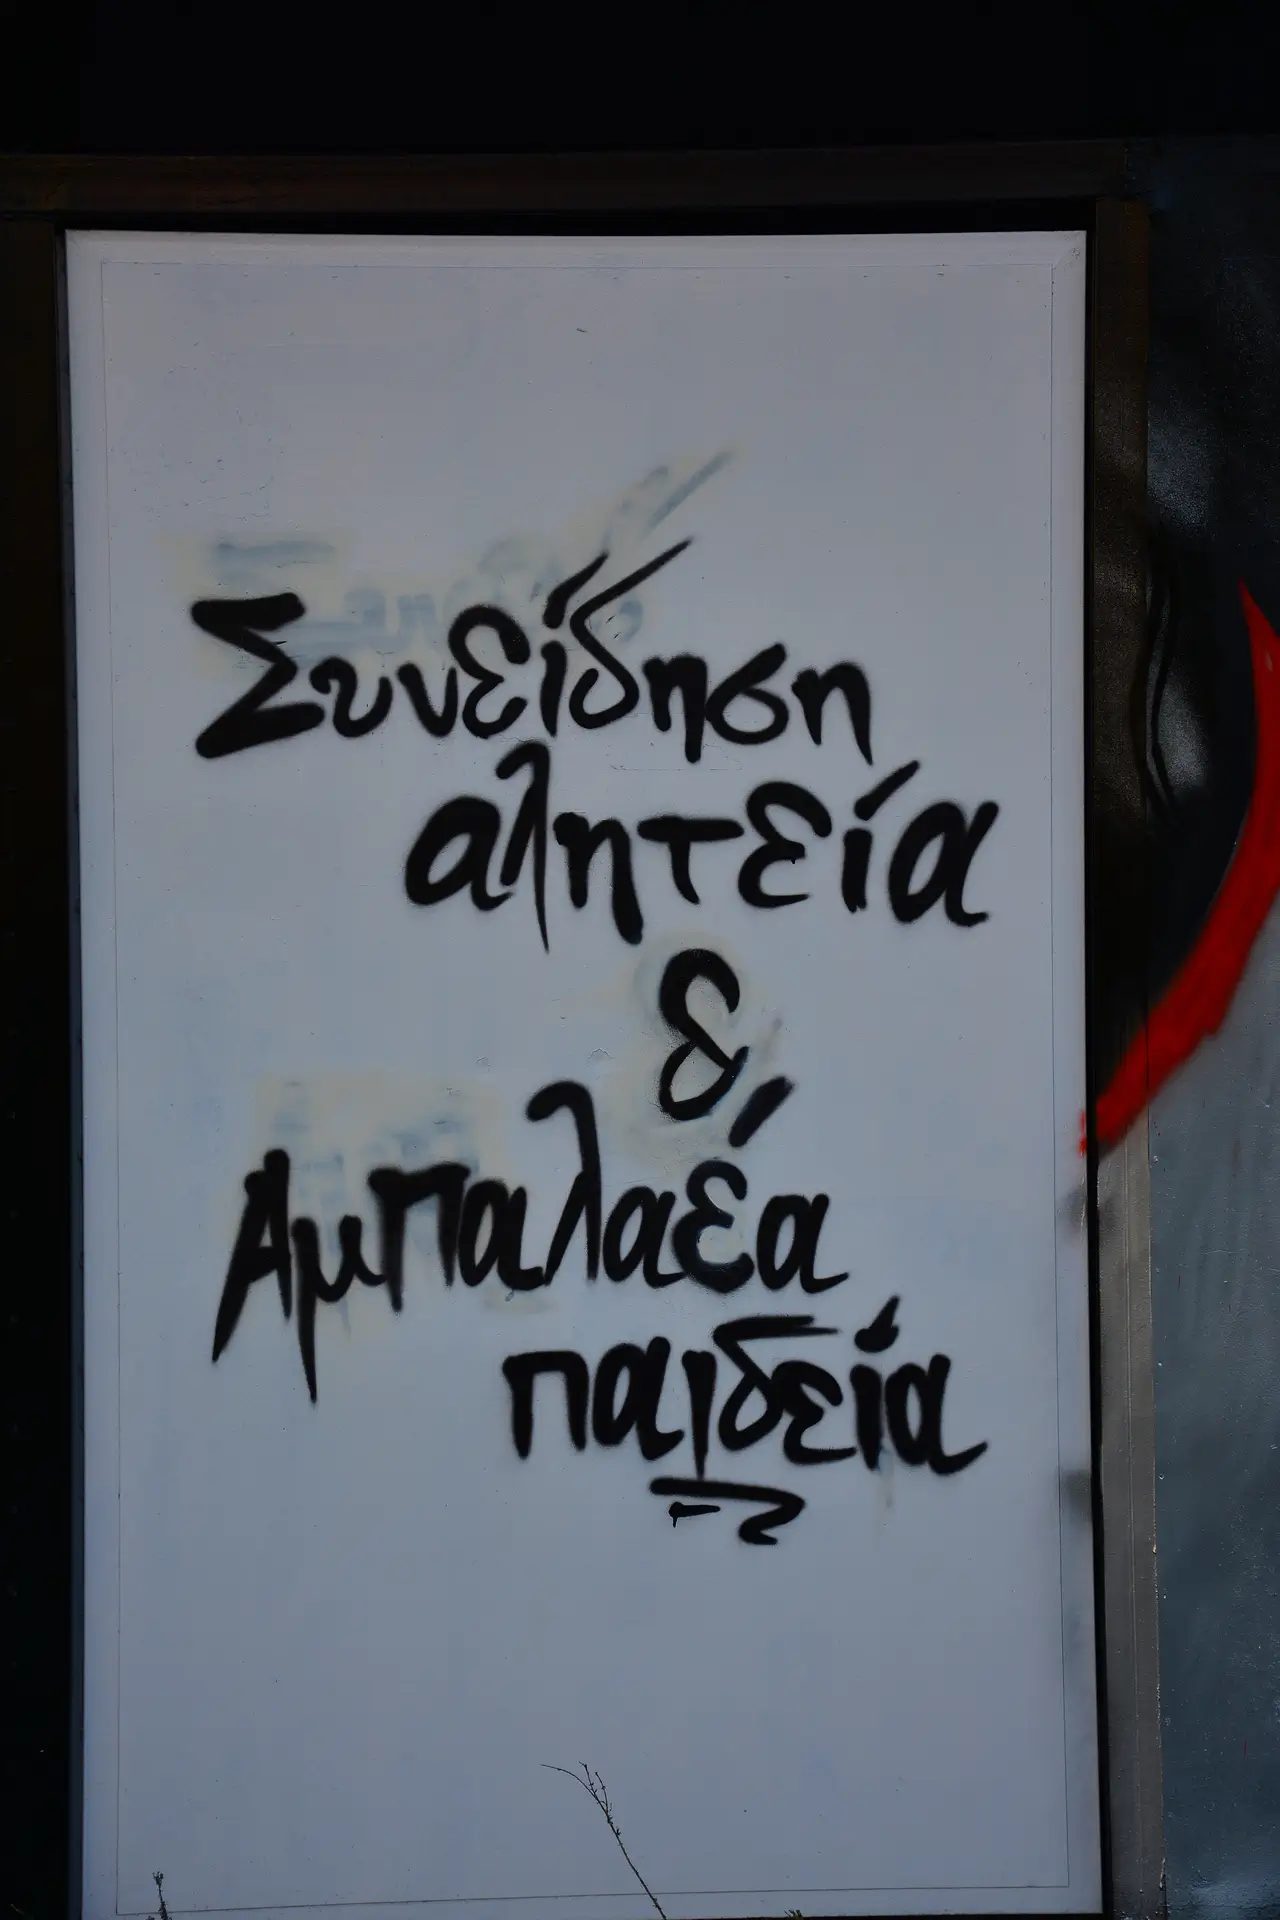 Συνείδηση
αλητεία
&
Αμπαλαέα
παιδεία